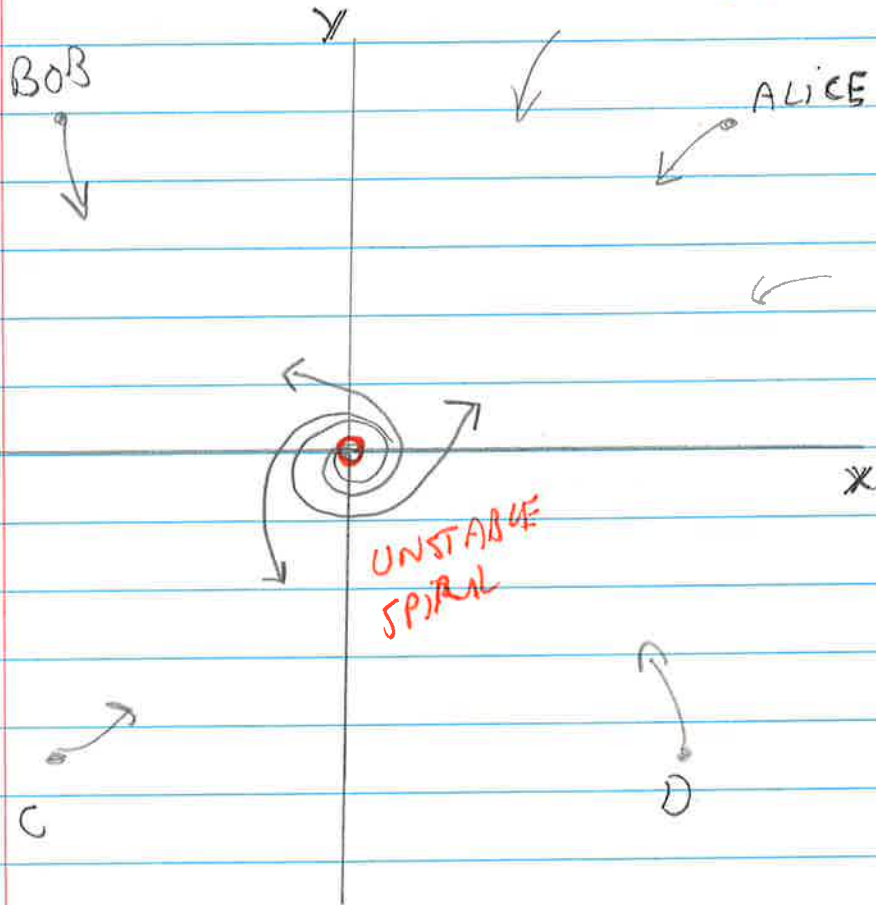 y
BOB
ALiCE
x
UNSTABLE
SPiRAL
C
D